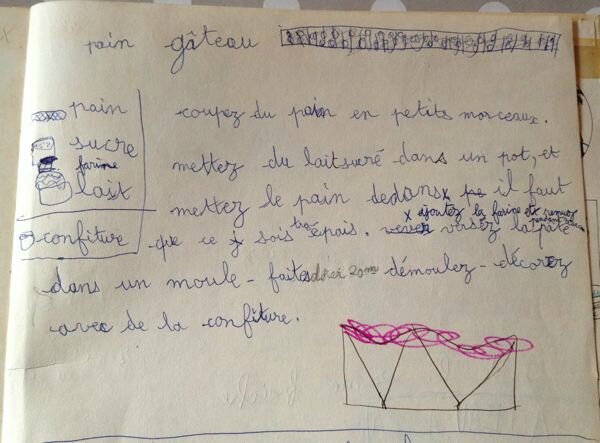 pain gâteau
pain
sucre
farine
lait
confiture
coupez du pain en petits morceaux.
mettez du lait sucré dans un pot, et
mettez le pain dedans x il faut
x ajoutez la farine et remuez
pendant
que ce sois très épais. versez la pâte
dans un moule - faites 20m démoulez - décorez
avec de la confiture.